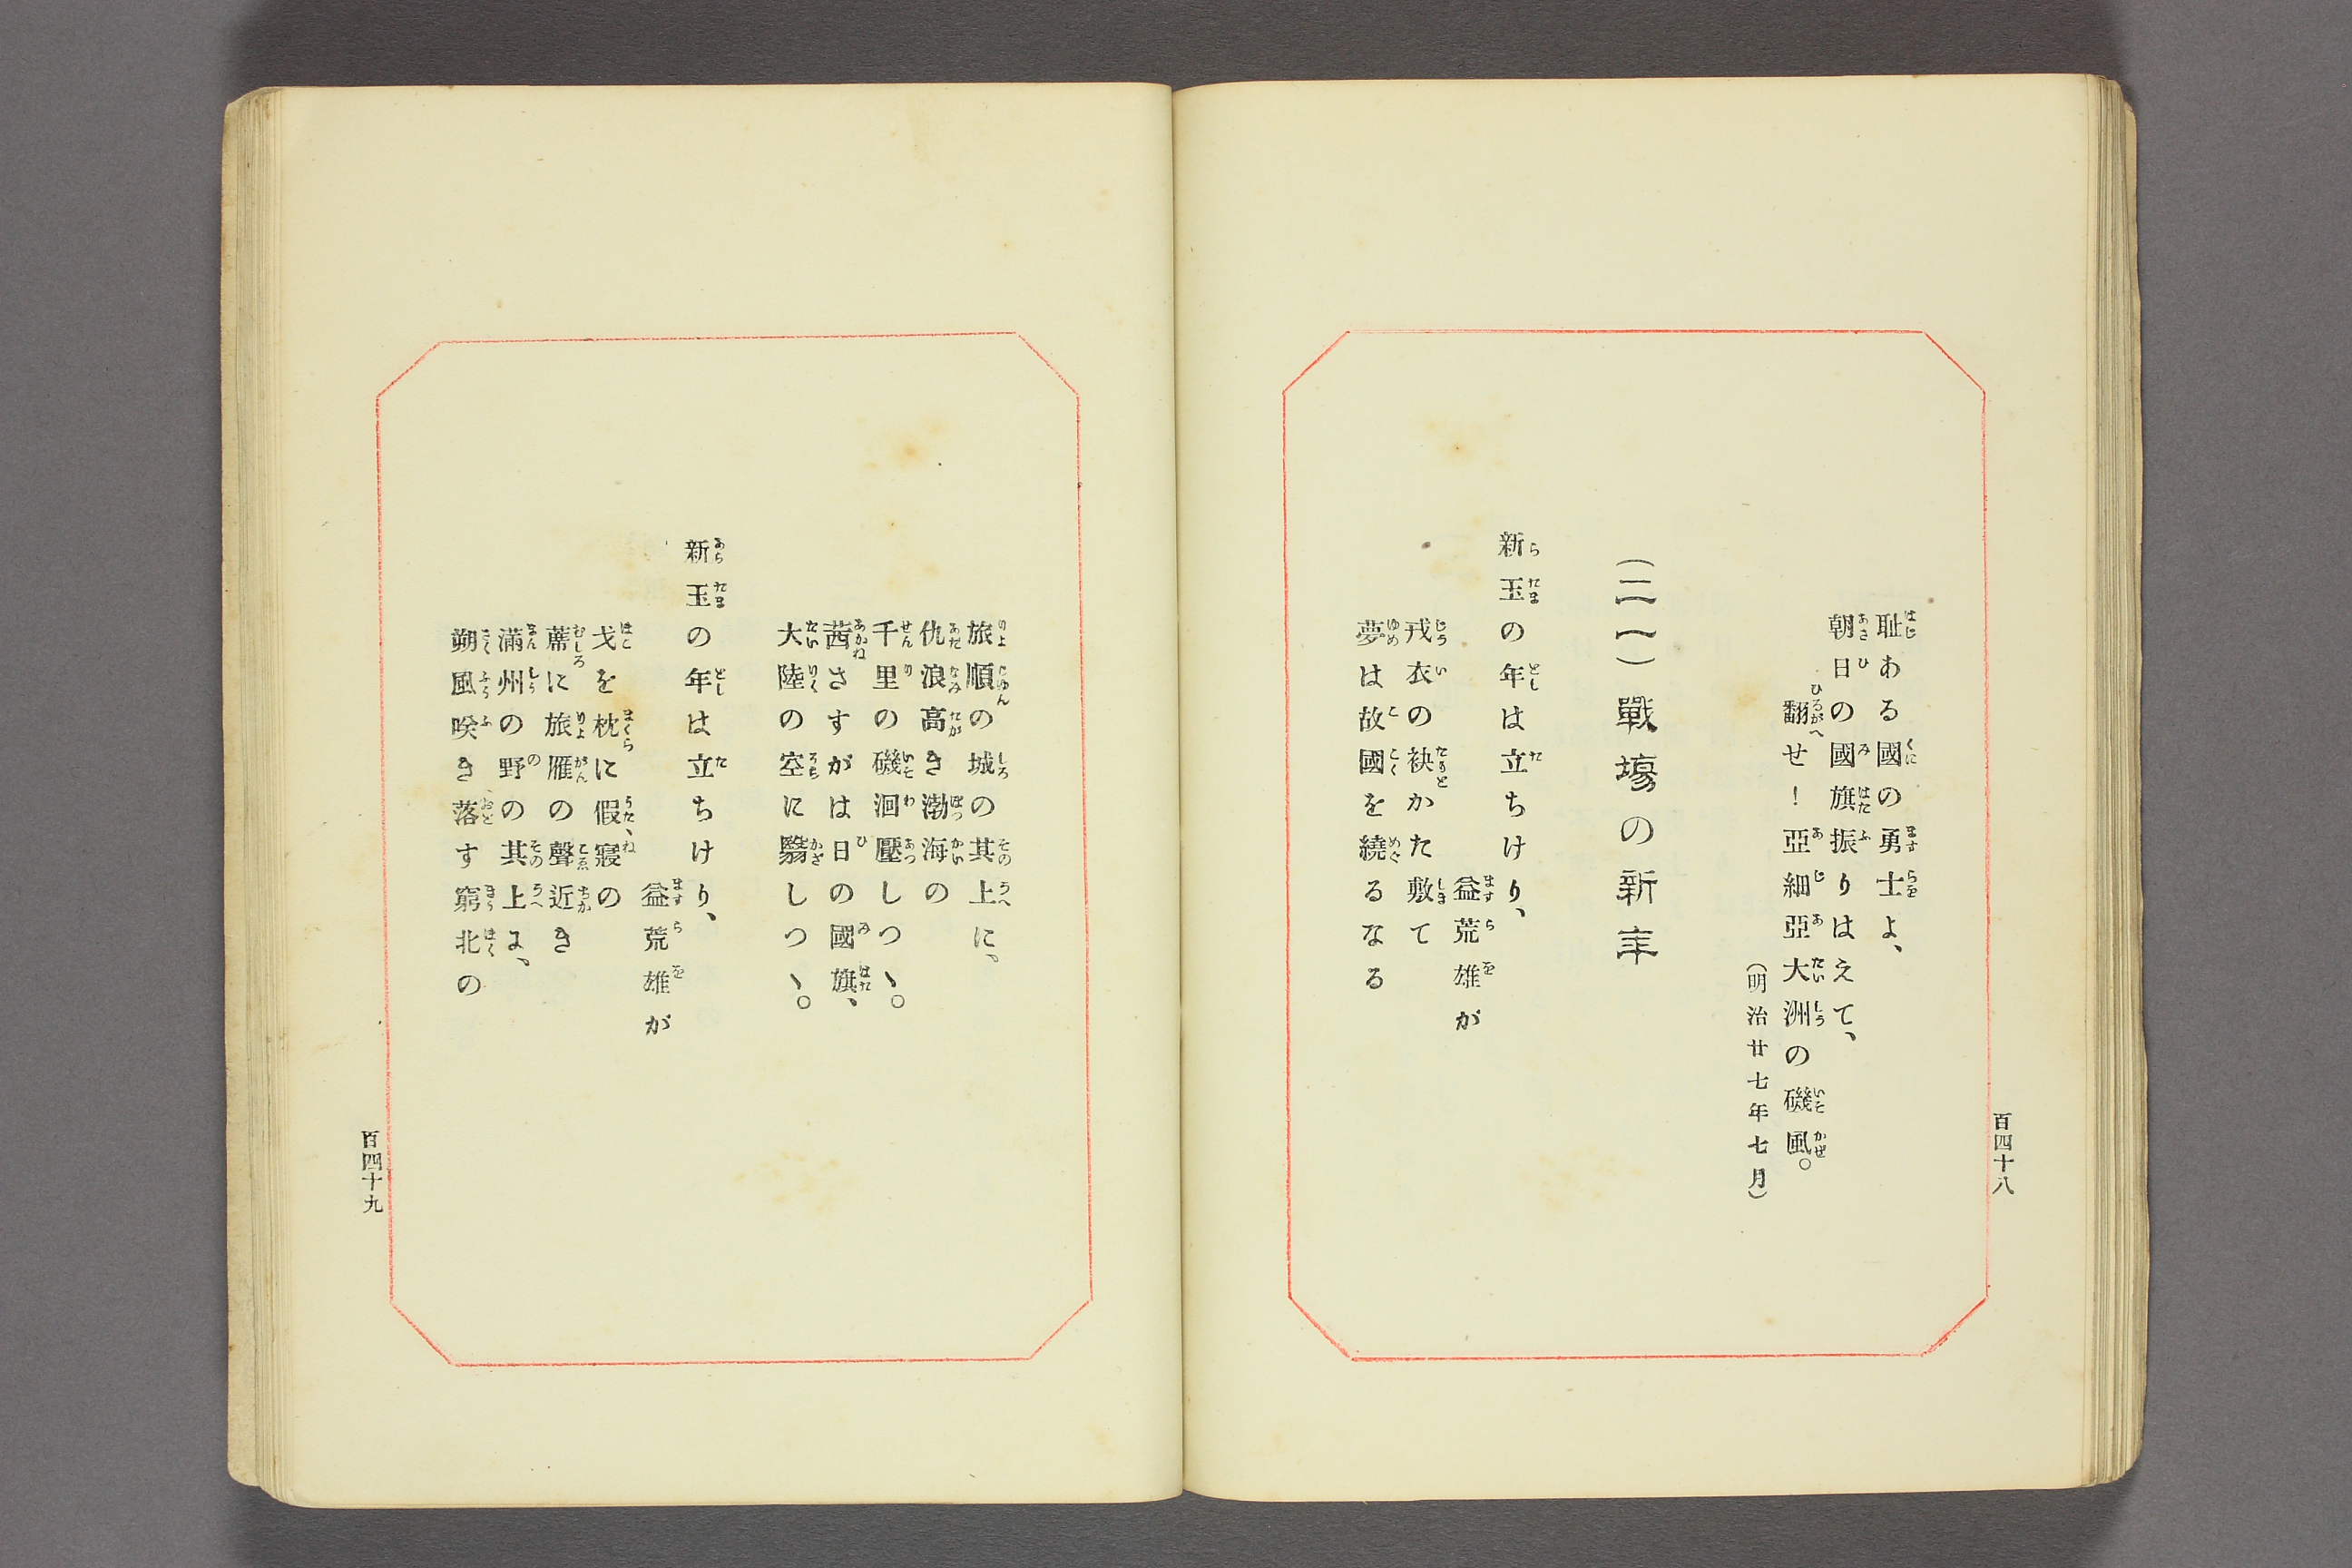 耻ある國の勇士よ、
朝日の國旗振りはえて、
翻せ！亞細亞大洲の磯風。
(明治廿七年七月)
(二一)戰塲の新年
新玉の年は立ちけり、
益荒雄が
戎衣の袂かた敷て
夢は故國を繞るなる
百四十八
旅順の城の其上に、
仇浪高き渤海の
千里の磯洄壓しつヽ。
茜さすがは日の國旗、
大陸の空に翳しつヽ。
新玉の年は立ちけり、
益荒雄が
戈を枕に假寢の
蓆に旅雁の聲近き
滿州の野の其上に、
朔風喚き落す窮北の
百四十九